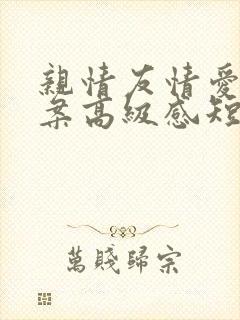 親情友情愛
案高級感短
萬賤歸宗